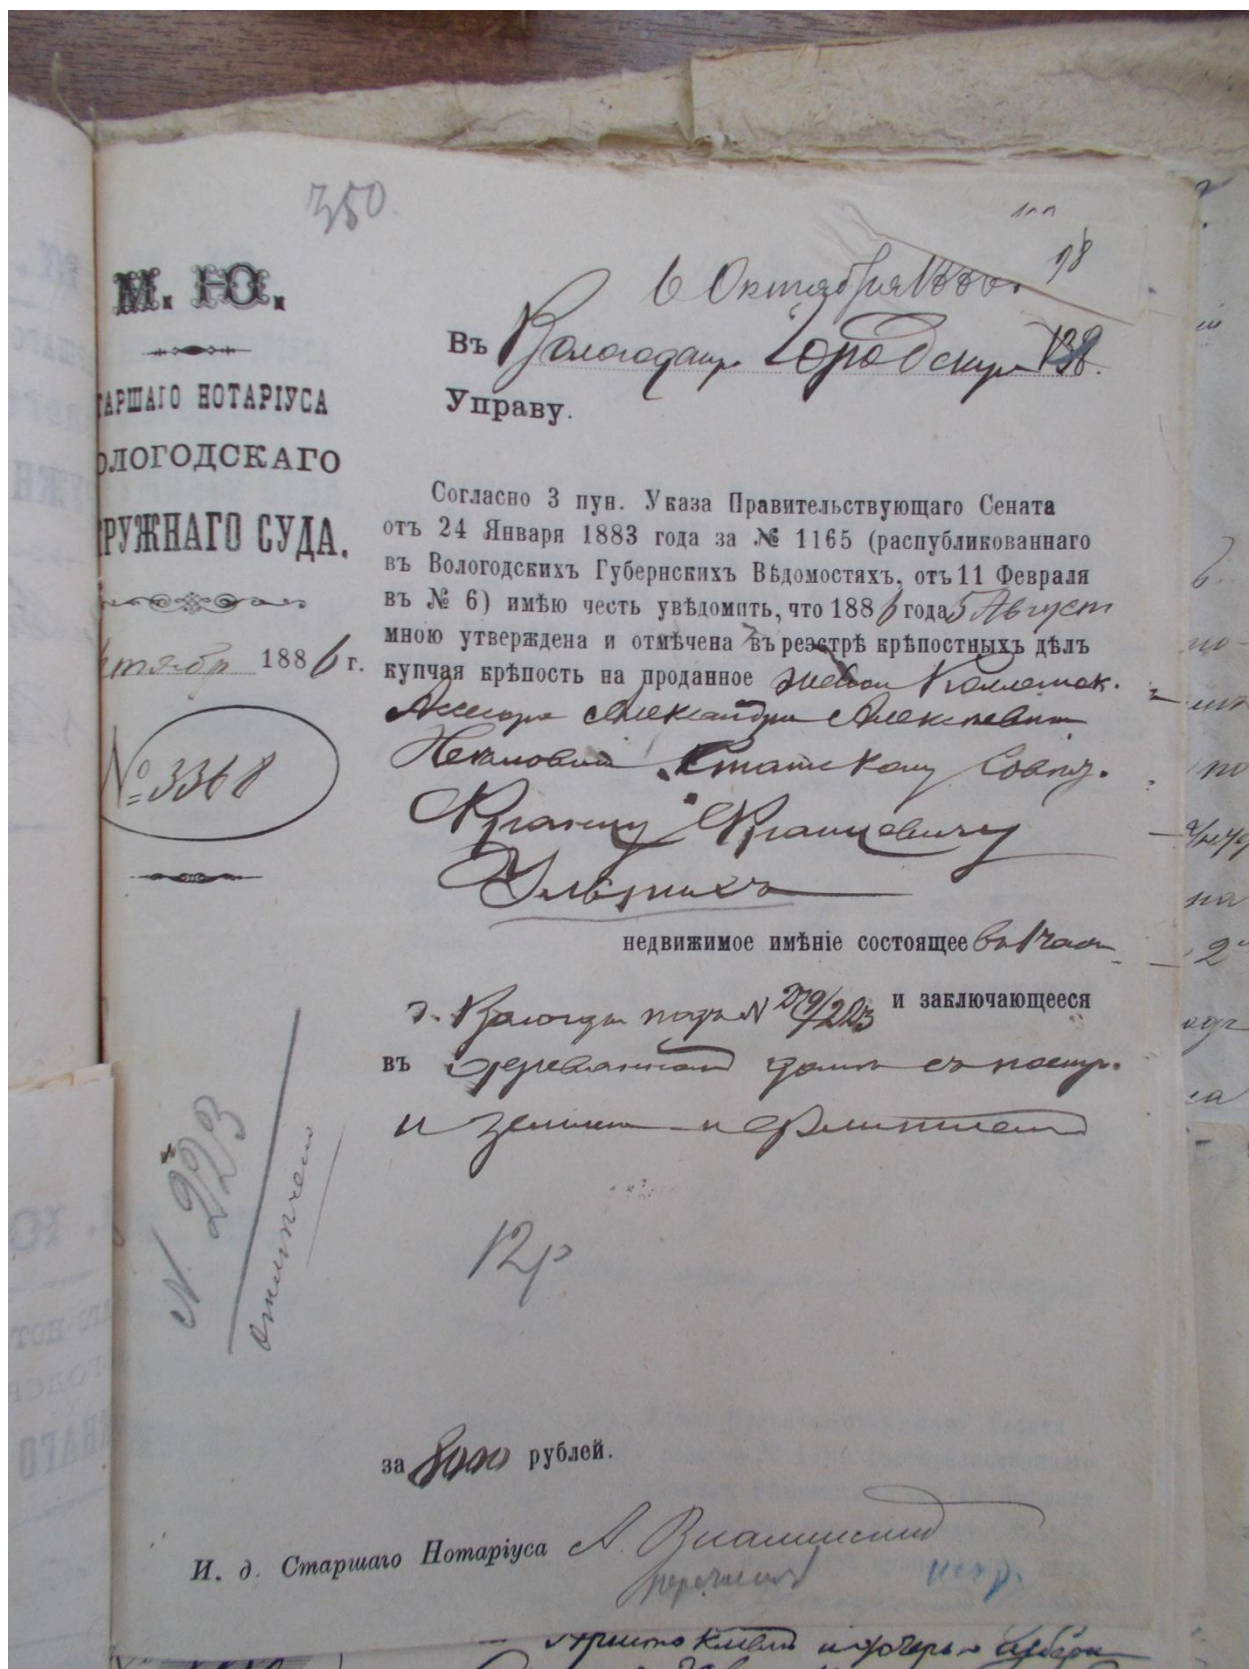 350.
18
6 Октября 1886.
М. Ю.
ТАРШАГО НОТАРІУСА
ОЛОГОДСКАГО
РУЖНАГО СУДА.
ктября 1886 г.
№ 3368
Въ Вологодскую Городскую
Управу.
Согласно 3 пун. Указа Правительствующаго Сената
отъ 24 Января 1883 года за № 1165 (распубликованнаго
въ Вологодскихъ Губернскихъ Вѣдомостяхъ, отъ 11 Февраля
въ № 6) имѣю честь увѣдомить, что 1886 года 5 Август
мною утверждена и отмѣчена въ реэстрѣ крѣпостныхъ дѣлъ
купчая крѣпость на проданное женою Коллежск.
Ассесора Александрою Алексѣевною
Статскому Совѣт.
недвижимое имѣніе состоящее въ 1 част
г. Вологды подъ N 279/223 и заключающееся
въ деревянномъ домѣ съ постр.
и землею
N 223
отмѣчено
12 р
за 8000 рублей.
И. д. Старшаго Нотаріуса А.